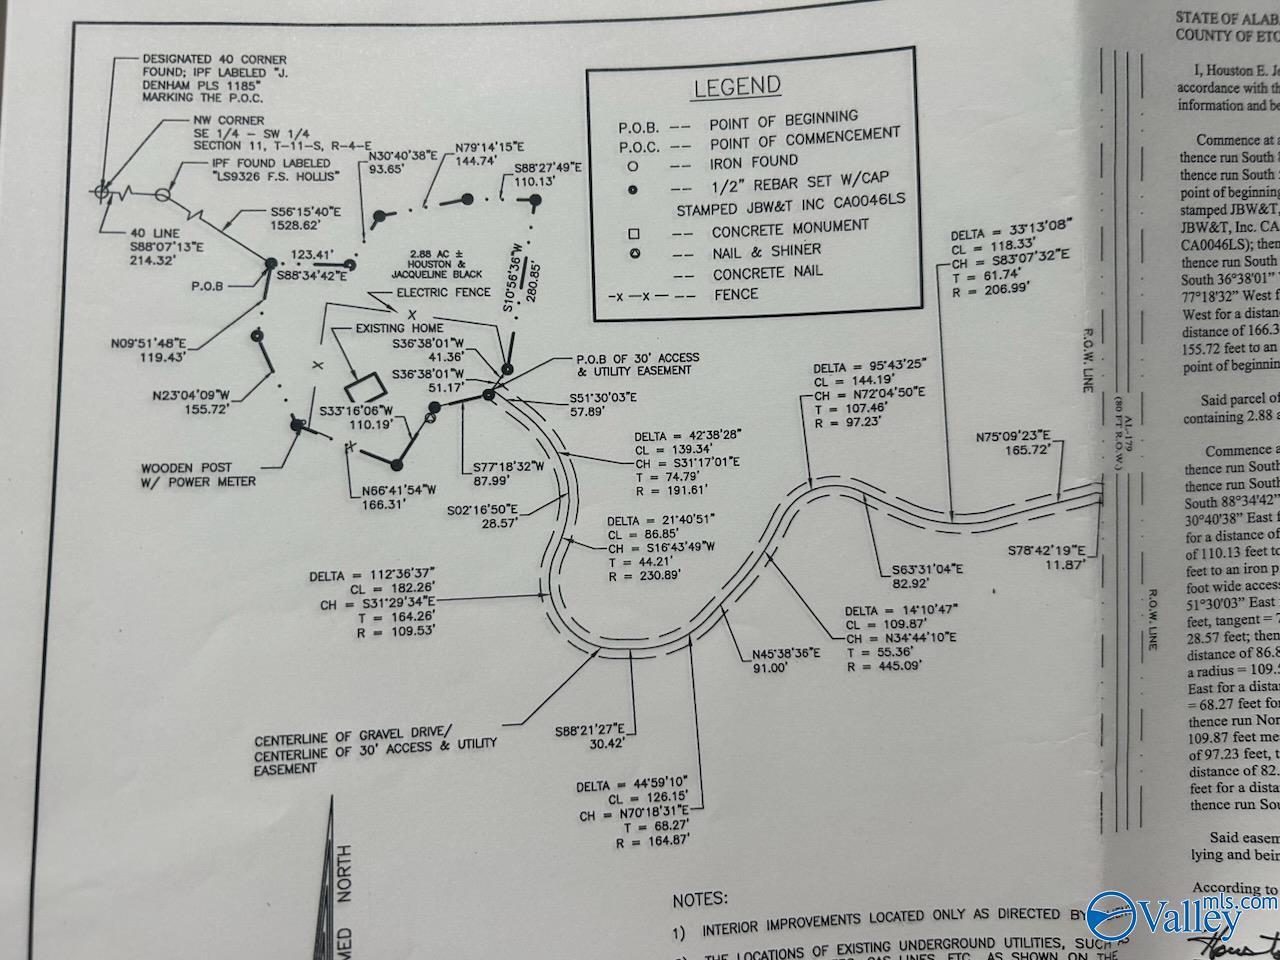 DESIGNATED 40 CORNER
FOUND; IPF LABELED "J.
DENHAM PLS 1185"
MARKING THE P.O.C.
NW CORNER
SE 1/4 - SW 1/4
SECTION 11, T-11-S, R-4-E
IPF FOUND LABELED
"LS9326 F.S. HOLLIS"
N30°40'38"E
93.65'
N79°14'15"E
144.74'
S88°27'49"E
110.13'
S56°15'40"E
1528.62'
40 LINE
S88°07'13"E
214.32'
123.41'
S88°34'42"E
P.O.B
2.88 AC ±
HOUSTON &
JACQUELINE BLACK
ELECTRIC FENCE
S10°56'36"W
280.85'
X
EXISTING HOME
N09°51'48"E
119.43'
X
S36°38'01"W
41.36'
S36°38'01"W
51.17'
P.O.B OF 30' ACCESS
& UTILITY EASEMENT
N23°04'09"W
155.72'
S33°16'06"W
110.19'
S51°30'03"E
57.89'
X
WOODEN POST
W/ POWER METER
N66°41'54"W
166.31'
S77°18'32"W
87.99'
DELTA = 42°38'28"
CL = 139.34'
CH = S31°17'01"E
T = 74.79'
R = 191.61'
S02°16'50"E
28.57'
DELTA = 21°40'51"
CL = 86.85'
CH = S16°43'49"W
T = 44.21'
R = 230.89'
DELTA = 112°36'37"
CL = 182.26'
CH = S31°29'34"E
T = 164.26'
R = 109.53'
CENTERLINE OF GRAVEL DRIVE/
CENTERLINE OF 30' ACCESS & UTILITY
EASEMENT
S88°21'27"E
30.42'
DELTA = 44°59'10"
CL = 126.15'
CH = N70°18'31"E
T = 68.27'
R = 164.87'
N45°38'36"E
91.00'
DELTA = 14°10'47"
CL = 109.87'
CH = N34°44'10"E
T = 55.36'
R = 445.09'
DELTA = 95°43'25"
CL = 144.19'
CH = N72°04'50"E
T = 107.46'
R = 97.23'
S63°31'04"E
82.92'
DELTA = 33°13'08"
CL = 118.33'
CH = S83°07'32"E
T = 61.74'
R = 206.99'
N75°09'23"E
165.72'
S78°42'19"E
11.87'
R.O.W. LINE
AL-179
(80 FT R.O.W.)
R.O.W. LINE
LEGEND
P.O.B. -- POINT OF BEGINNING
P.O.C. -- POINT OF COMMENCEMENT
-- IRON FOUND
-- 1/2" REBAR SET W/CAP
STAMPED JBW&T INC CA0046LS
-- CONCRETE MONUMENT
-- NAIL & SHINER
-- CONCRETE NAIL
-x-x- -- FENCE
NORTH
NOTES:
1) INTERIOR IMPROVEMENTS LOCATED ONLY AS DIRECTED BY
THE LOCATIONS OF EXISTING UNDERGROUND UTILITIES, SUCH
GAS LINES, ETC. AS SHOWN ON THE
STATE OF ALAB
COUNTY OF ETO
I, Houston E. Je
accordance with th
information and be
Commence at a
thence run South
thence run South
point of beginning
stamped JBW&T,
JBW&T, Inc. CA
CA0046LS); then
thence run South
South 36°38'01"
77°18'32" West f
West for a distan
distance of 166.3
155.72 feet to an
point of beginnin
Said parcel of
containing 2.88 a
Commence a
thence run South
thence run South
South 88°34'42"
30°40'38" East f
for a distance of
of 110.13 feet to
feet to an iron p
foot wide access
51°30'03" East
feet, tangent = 7
28.57 feet; then
distance of 86.8
a radius = 109.5
East for a distan
= 68.27 feet for
thence run Nor
109.87 feet me
of 97.23 feet, t
distance of 82.
feet for a dista
thence run Sou
Said easem
lying and bein
According to
Valleymls.com